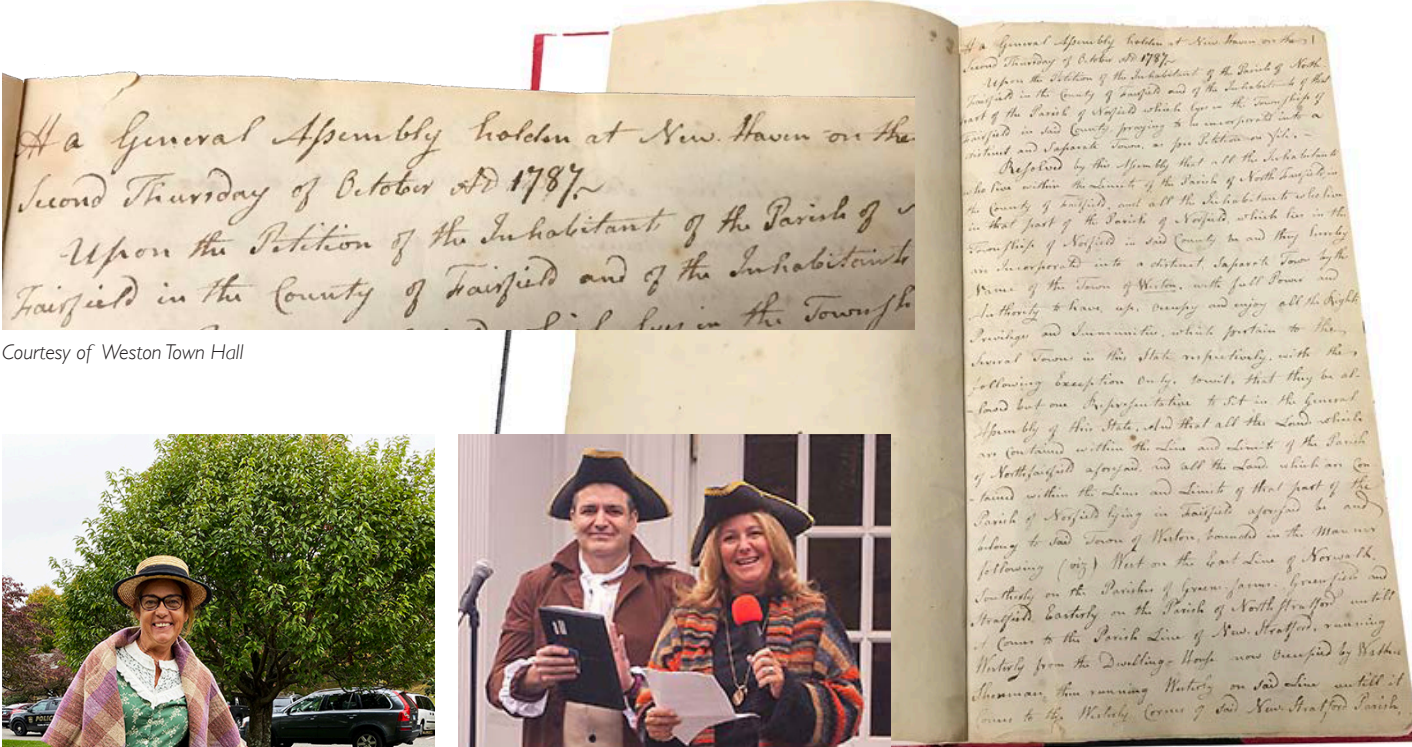 At a General Assembly holden at New Haven on the
Second Thursday of October AD 1787.
Upon the Petition of the Inhabitant of the Parish of
Fairfield in the County of Fairfield and of the Inhabitants
lyes in the Townsh
Courtesy of Weston Town Hall
POLICE
At a General Assembly holden at New Haven on the 1
Second Thursday of October AD 1787.
Upon the Petition of the Inhabitant of the Parish of North
Fairfield in the County of Fairfield and of the Inhabitants of that
part of the Parish of Norfield which lyes in the Township of
Fairfield in said County praying to be incorporated into a
distinct and Saparate Town, as per Petition on file.
Resolved by this Assembly that all the Inhabitants
who live within the Limits of the Parish of North Fairfield in
the County of Fairfield, and all the Inhabitants who live
in that part of the Parish of Norfield, which lies in the
Township of Norfield in said County be and they hereby
are Incorporated into a distinct, Saparate Town by the
Name of the Town of Weston, with full Power and
Authority to have, use, occupy and enjoy all the Rights
Privileges and Immunities, which pertain to the
Several Towns in this State respectively, with the
following Exception only, towit, that they be al-
-lowed but one Representative to Sit in the General
Assembly of this State, And that all the Land which
are Contained within the Line and Limits of the Parish
of Northfairfield aforesaid, and all the Land which are Con
tained within the Lines and Limits of that part of the
Parish of Norfield lying in Fairfield aforesaid be and
belong to said Town of Weston, bounded in the Manner
following (viz) West on the East Line of Norwalk,
Southerly on the Parishes of Greens farms, Greenfield and
Stratfield, Easterly on the Parish of North Stratford untill
it Comes to the Parish Line of New Stratford, running
Westerly from the Dwelling House now Occupied by
Sherman, then running Westerly on said Line untill it
Comes to the Westerly Corner of said New Stratford Parish,